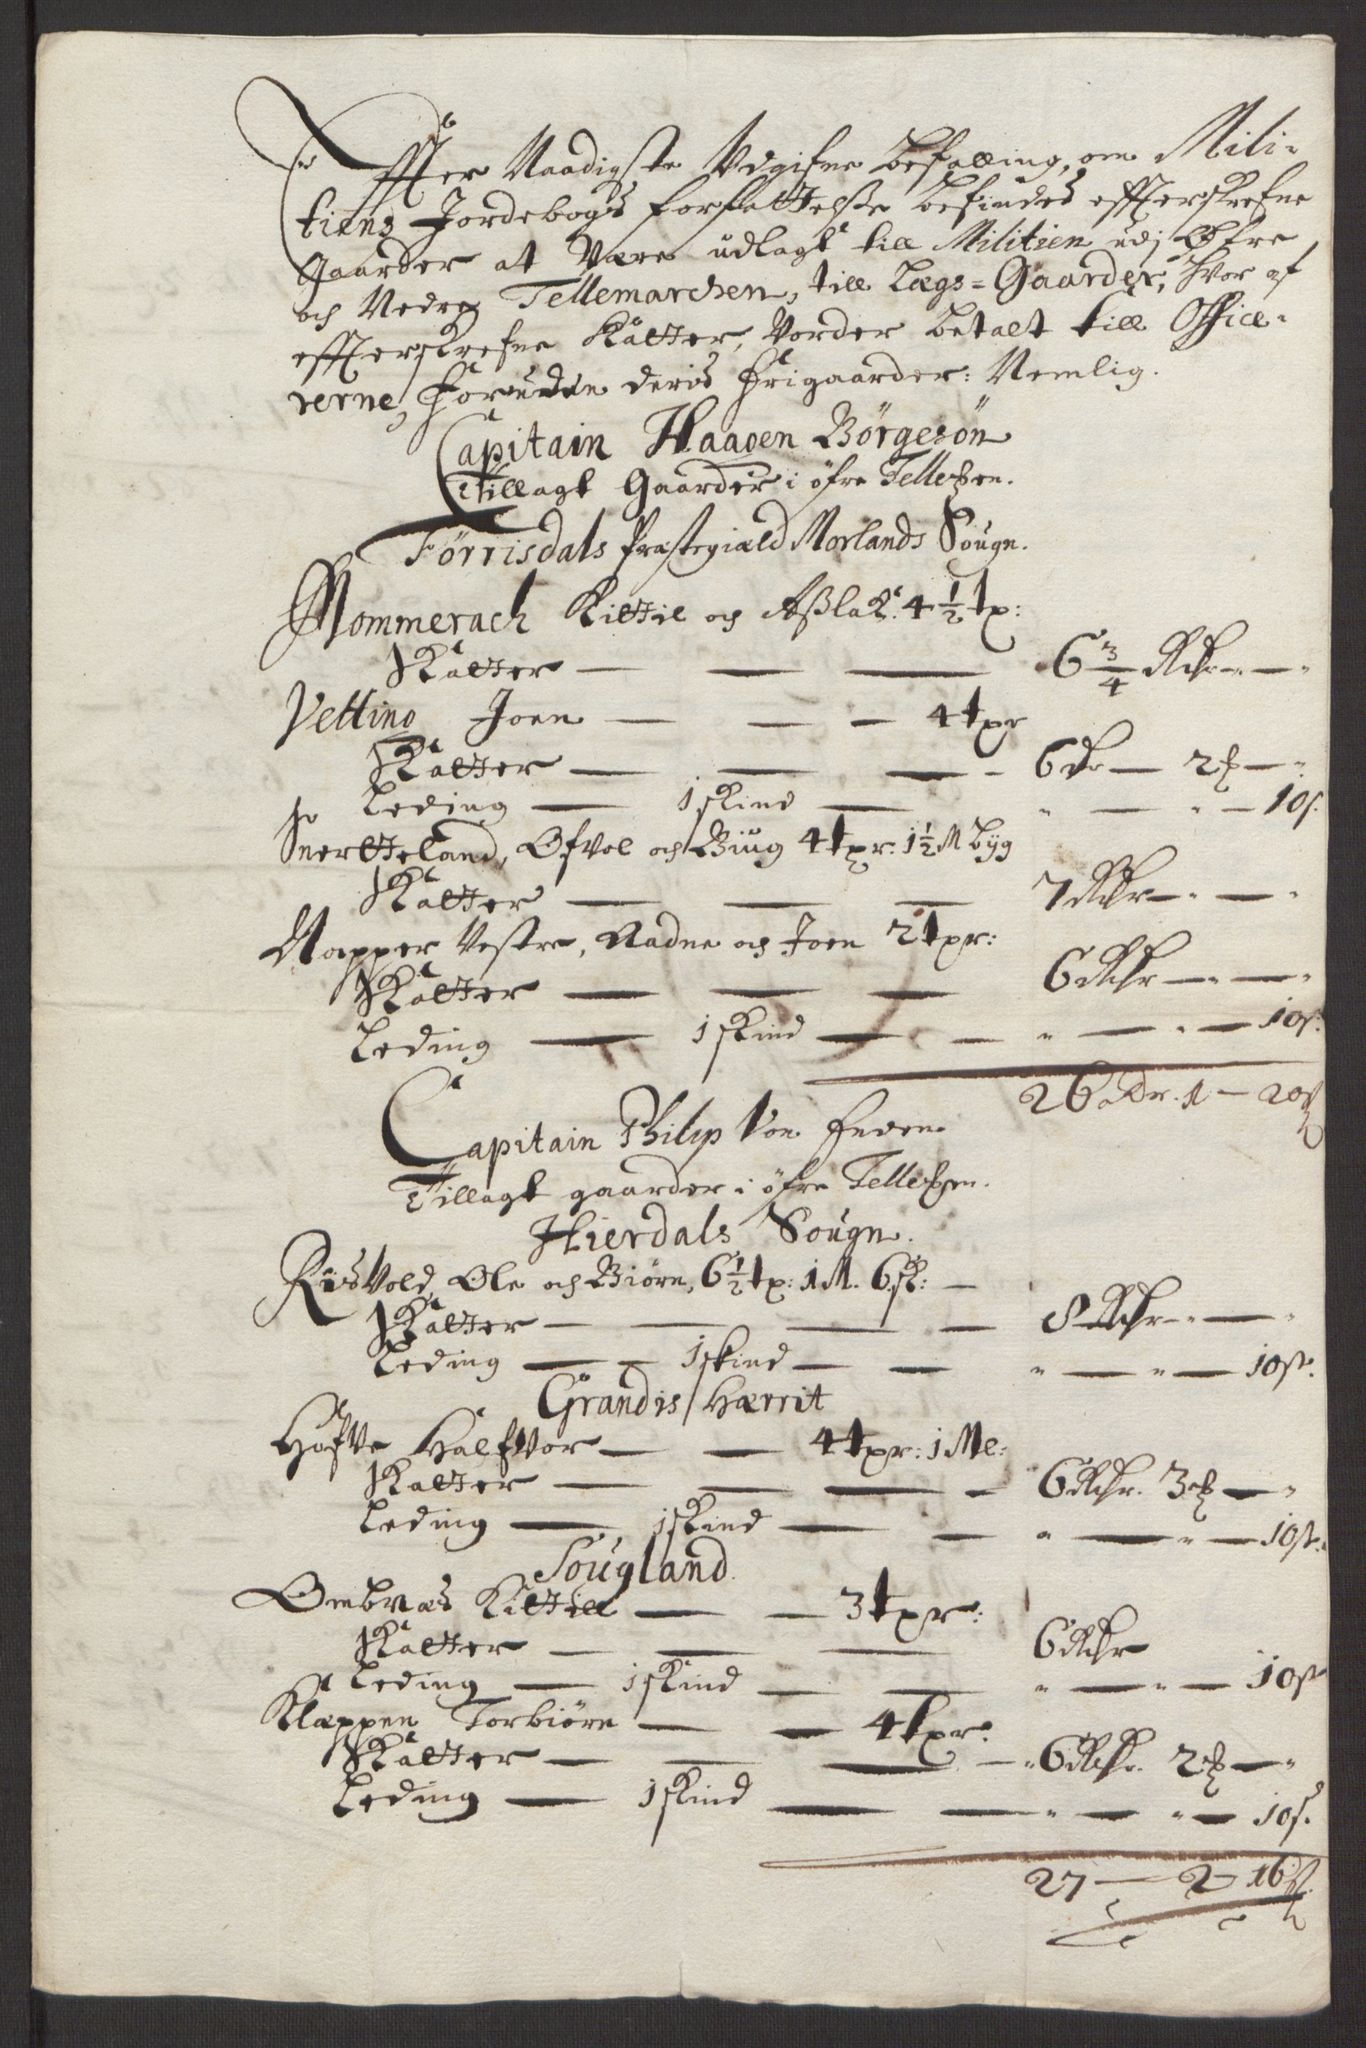 Effter Naadigste Udgifne befalling, om Mili-
tiens Jordebogs forfattelse befindes effterskrefne
Gaarder at være udlagt till Militien udj Øfre
och Nedre Tellemarchen, till Lægs-Gaarder, hvor af
effterskrefne Skatter, Vorder betalt till Office-
rerne, foruden deris frigaarder: Nemlig.
Capitain Haagen Börgesön
Tillagt Gaarder i öfre Tellem:en.
Förrisdals Præstegiæld Morlands Sougn.
Mommerach Kittil och Aßlak: 4 1/2 tpr:
Skatter — — — 6 3/4 Rdr — „ — „
Vetting Joen — — — 4 tpr
Skatter — — — 6 dr — 2 ₰ — „
Leding — 1 skind — „ — „ — 10 s.
Snertteland, Ofvol och Biug 4 tpr: 1 1/2 M byg
Skatter — — — 7 Rdr — „ — „
Napper Vestre, Aadne och Joen 2 tpr:
Skatter — — — 6 Rdr — „ — „
Leding — 1 skind — — „ — „ — 10 s:
26 Rdr. 1 — 20 s
Capitain Philip Von
Tillagt gaarder i öfre Tellem:en.
Hierdals Sougn.
RisVold, Ole och Biörn, 6 1/2 tp: 1 M. 6 sk: —
Skatter — — — — 8 Rdr — „ — „
Leding — 1 skind — — „ — „ — 10 s.
Grandis Hærrit
Höfve Halfvor — — 4 tpr: 1 Ml:
Skatter — — — — 6 Rdr. 3 ₰ — „
Leding — 1 skind — — „ — „ — 10 s.
Sougland.
Ombnæs Kittill — — 3 tpr:
Skatter — — — 6 Rdr
Leding — 1 skind — — „ — „ — 10 s
Klæppen Torbiörn — — 4 tpr:
Skatter — — — — „ 6 Rdr. 2 ₰ — „
Leding — 1 skind — — „ — „ — 10 s.
27 — 2 — 16 s.